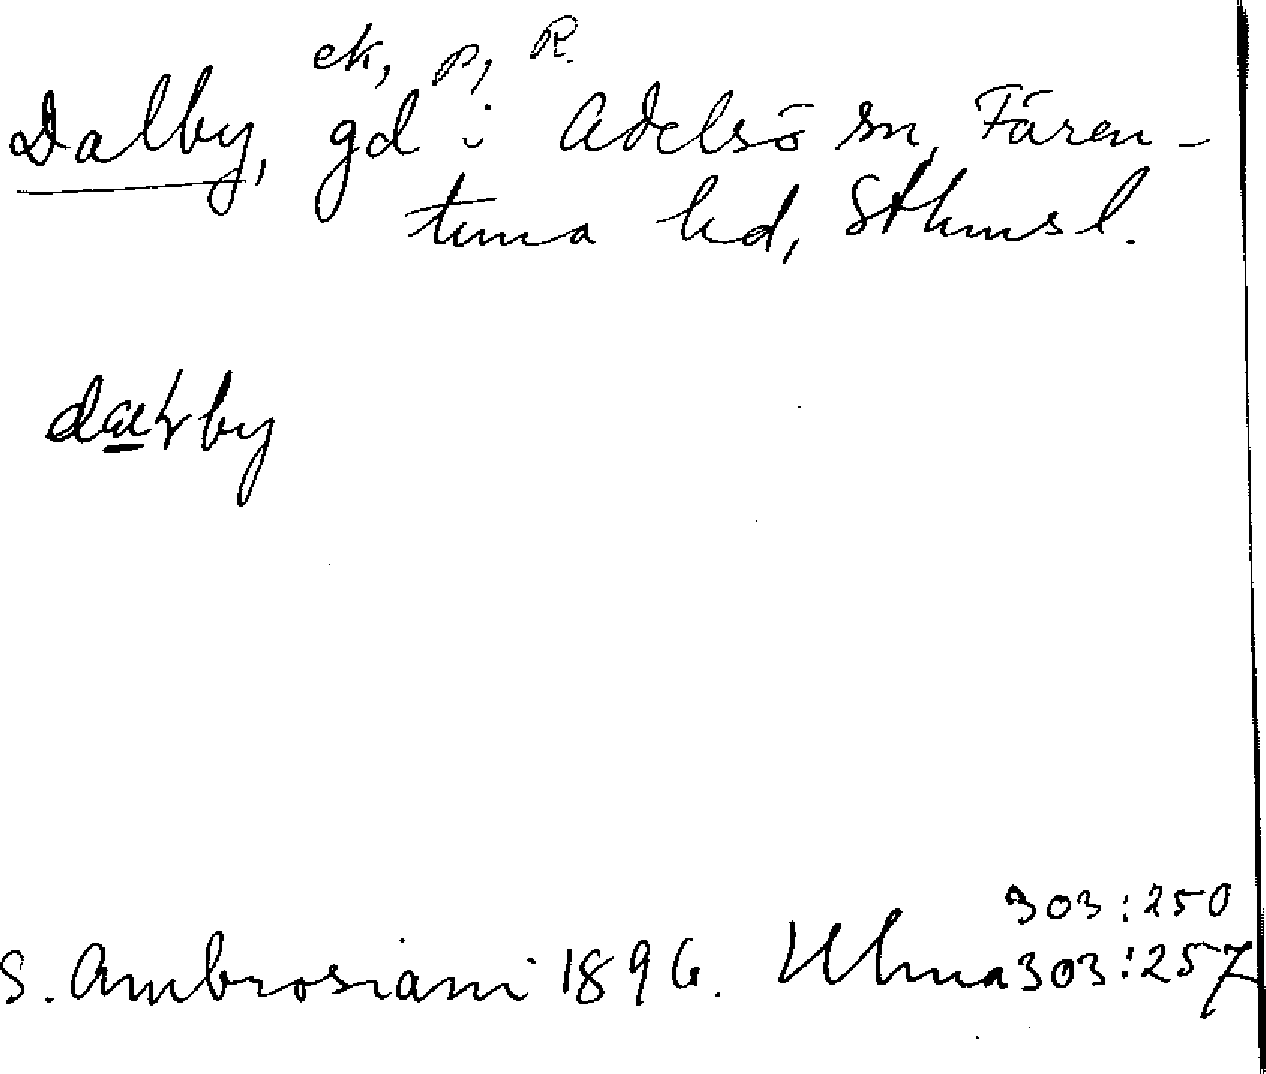 ek, p, R.
Dalby, gd i Adelsö sn, Fären-
tuna hd, Sthmsl.
303:250
S. Ambrosiani 1896. Ulma 303:257